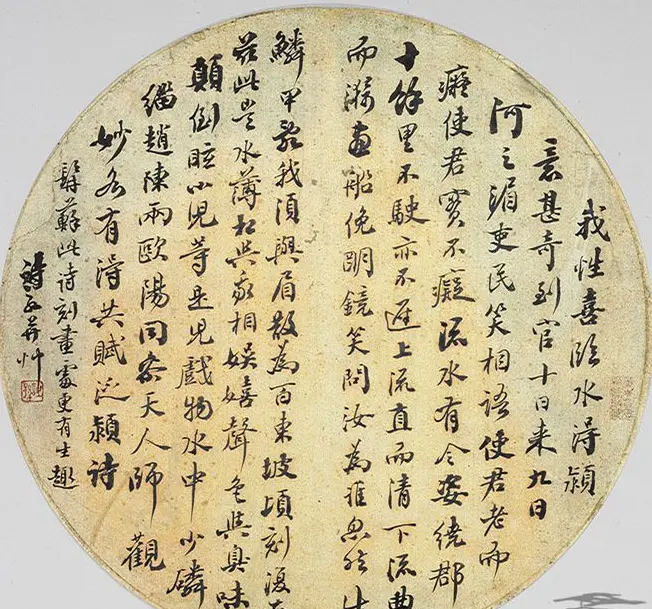 我性喜臨水得潁
意甚奇到官十日来九日
河之湄吏民笑相語使君老而
癡使君實不癡流水有令姿繞郡
十餘里不駛亦不遲上流直而清下流曲
而漪畫船俛明鏡笑問汝為誰忽然生
鱗甲亂我須與眉散為百東坡頃刻復在
茲此豈水薄相與我相娛嬉聲色與臭味
顛倒眩小兒等是兒戲物水中少磷
緇趙陳兩歐陽同參天人師觀
妙各有得共賦泛潁詩
髯蘇此詩刻畫處更有生趣